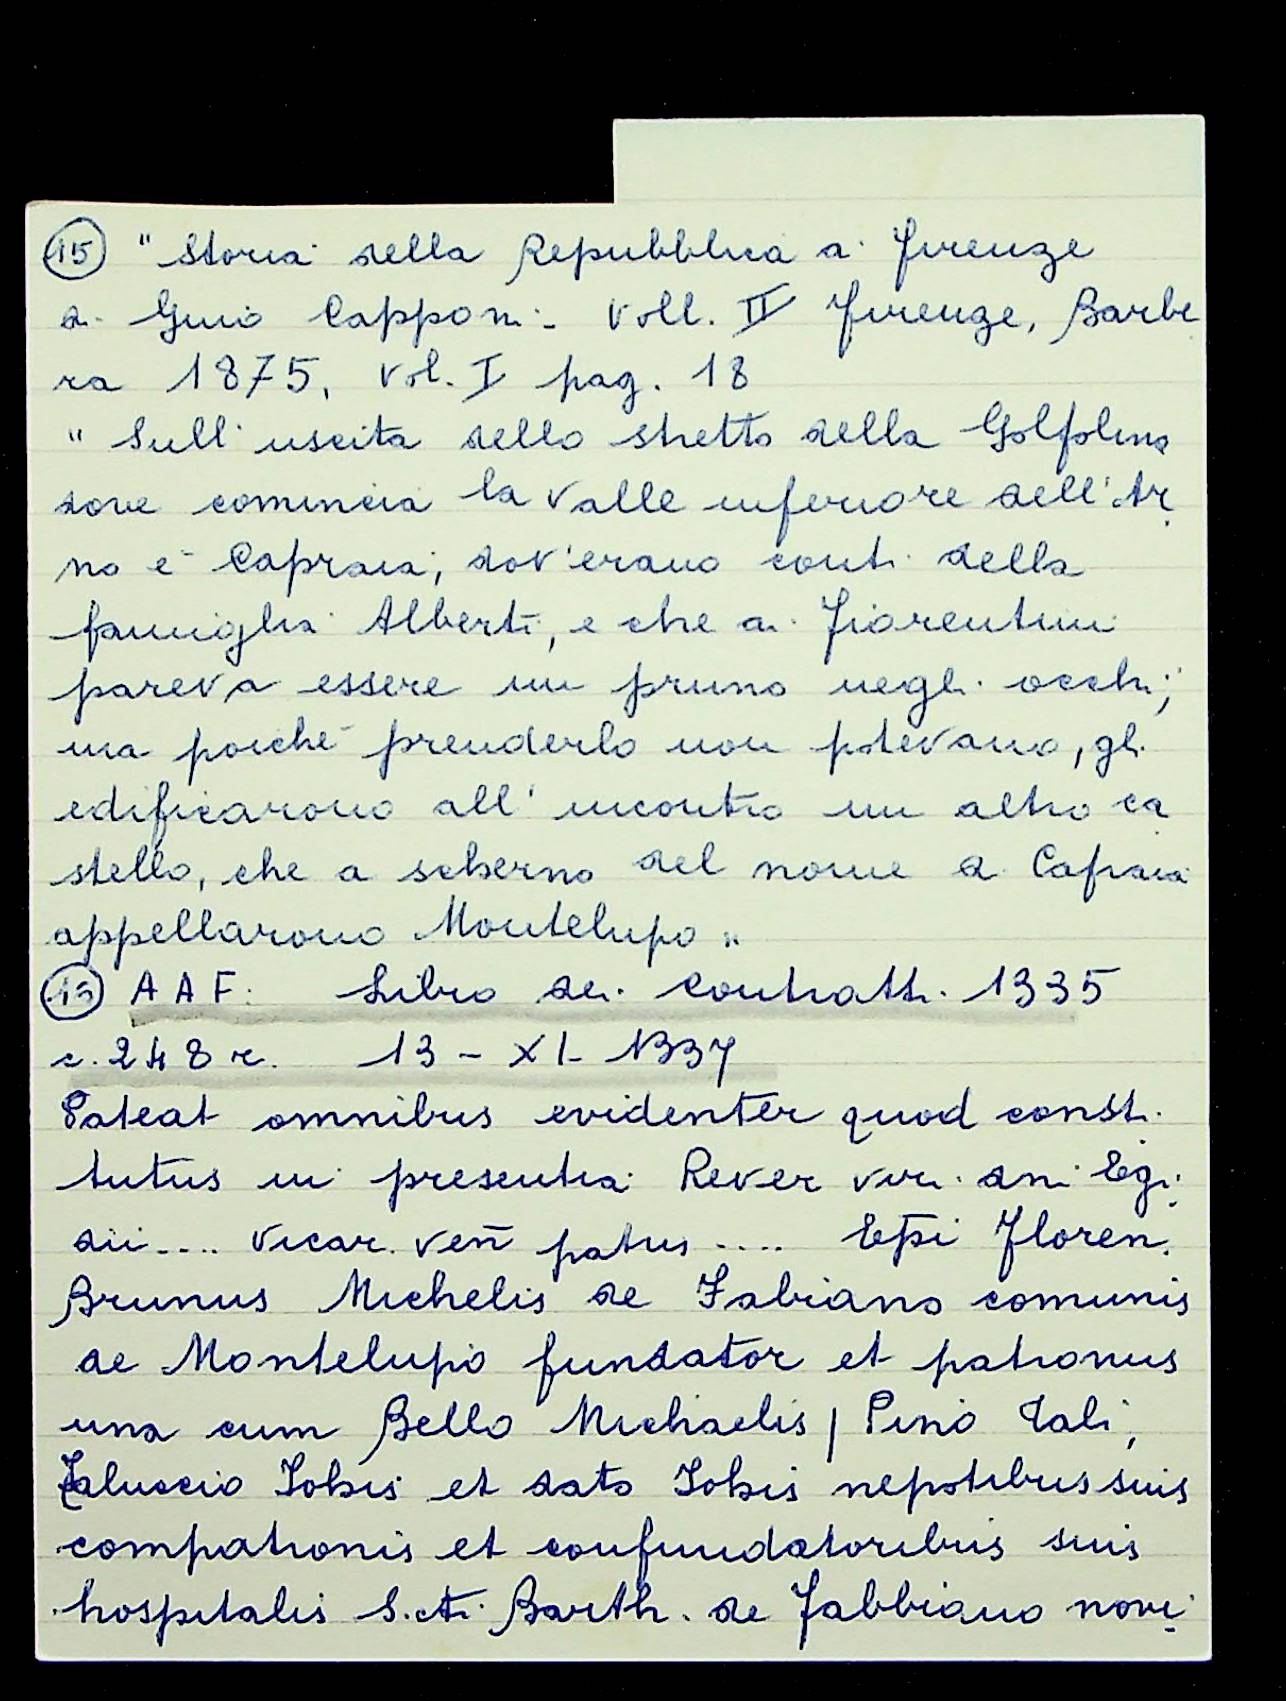 (15) "Storia della Repubblica di Firenze
di Gino Capponi - Voll. II Firenze, Barbe
ra 1875, Vol. I pag. 18
"Sull'uscita dello stretto della Golfolina
dove comincia la Valle inferiore dell'Ar
no è Capraia, dov'erano conti della
famiglia Alberti, e che ai Fiorentini
pareva essere un pruno negli occhi;
ma poiché prenderlo non potevano, gli
edificarono all'incontro un altro ca
stello, che a scherno del nome di Capraia
appellarono Montelupo"
(13) AAF. Libro dei Contratti 1335
c. 248 r. 13 - XI - 1337
Pateat omnibus evidenter quod consti
tutus in presentia Rever viri dni Egi
dii .... Vicar. Ven patris .... Epi Floren.
Brunus Michelis de Fabiano comunis
de Montelupo fundator et patronus
una cum Bello Michaelis, Pino Tali,
Taluccio Iohis et dato Iohis nepotibus suis
compatronis et confundatoribus suis
hospitalis S.cti Barth. de Fabbiano novi